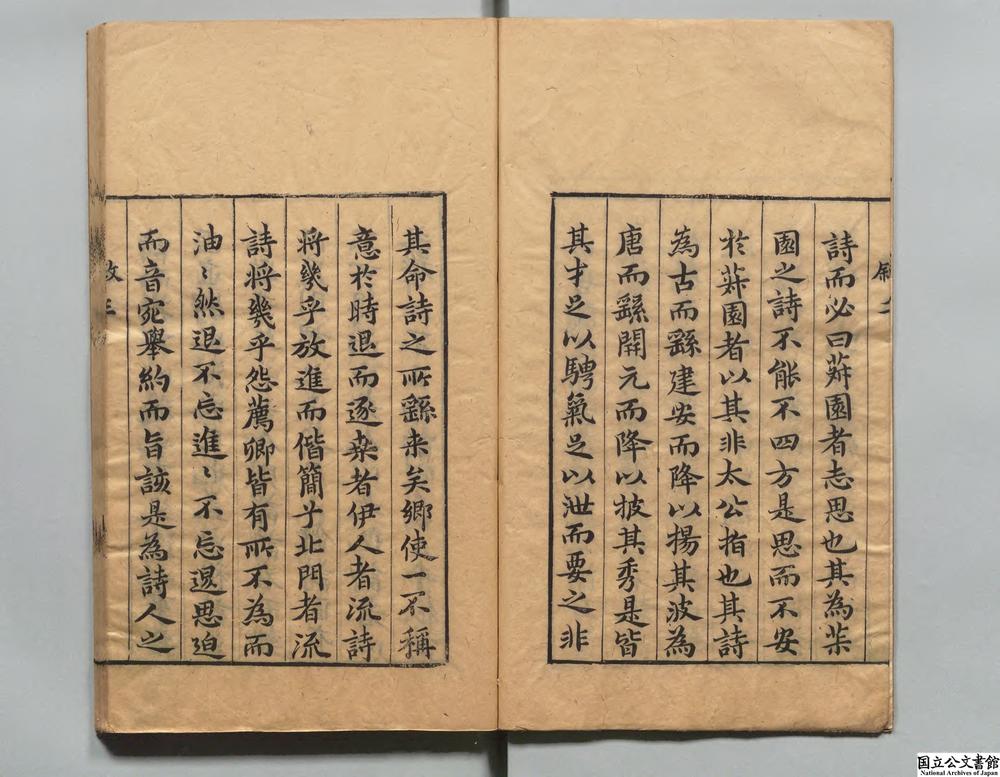 叙二
詩而必曰蕲園者志思也其為茮
園之詩不能不四方是思而不安
扵蕲園者以其非太公指也其詩
為古而繇建安而降以揚其波為
唐而繇開元而降以披其秀是皆
其才足以騁氣足以泄而要之非
其命詩之所繇来矣鄉使一不稱
意於時退而逐桒者伊人者流詩
将幾乎放進而偕簡兮北門者流
詩将幾乎怨薦卿皆有所不為而
油〻然退不忘進〻不忘退思迫
而音宛舉約而旨該是為詩人之
叙三
国立公文書館
National Archives of Japan